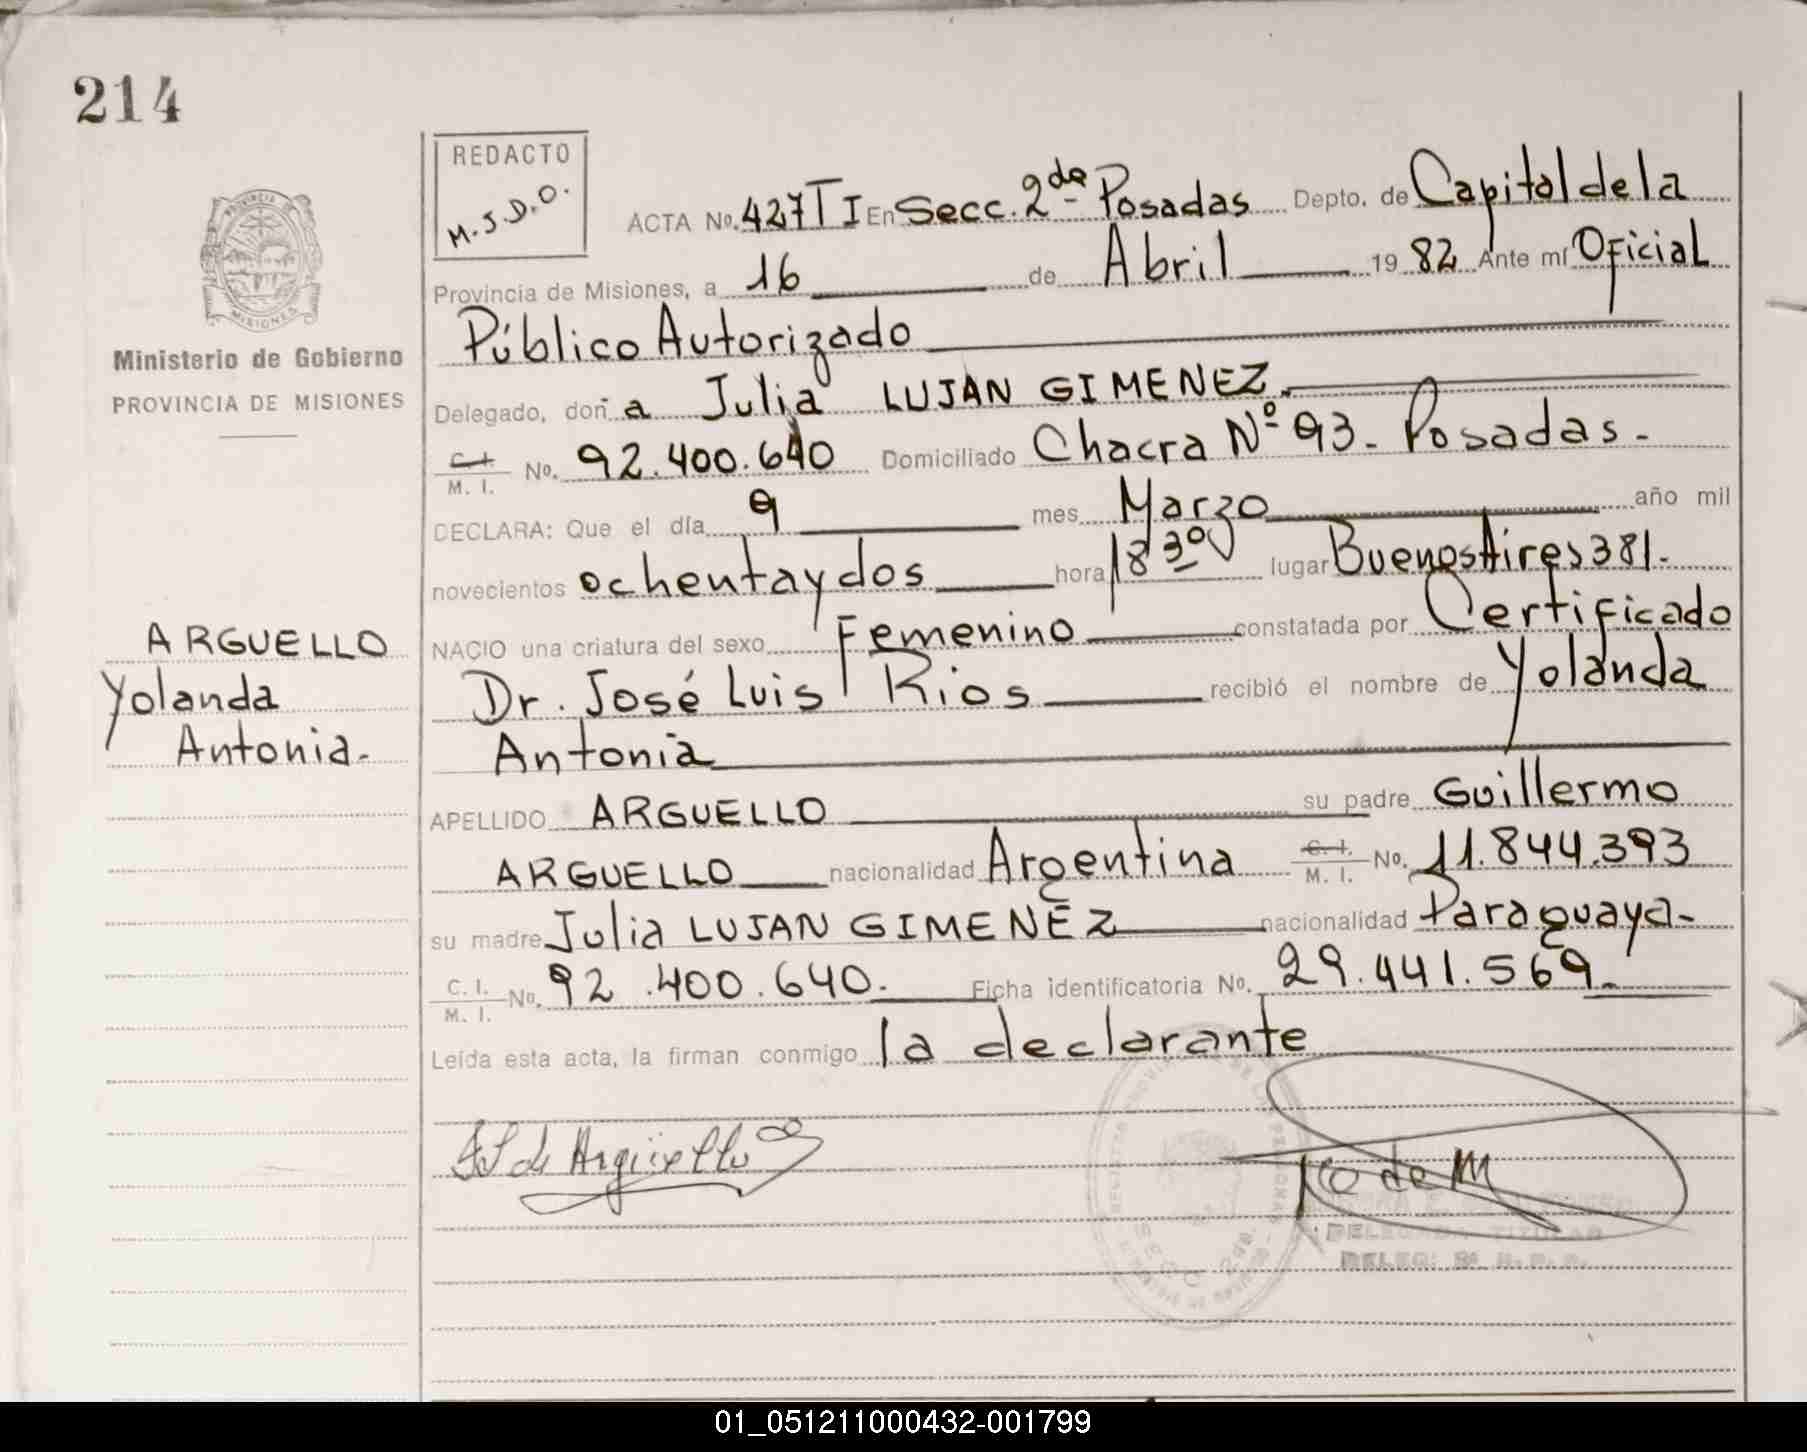 214
REDACTO
M.J.D.O.
PROVINCIA
MISIONES
Ministerio de Gobierno
PROVINCIA DE MISIONES
ACTA No. 427 T I En Secc. 2da Posadas Depto. de Capital de la
Provincia de Misiones, a 16 de Abril 19 82 Ante mí Oficial
Público Autorizado
Delegado, doña Julia LUJAN GIMENEZ.
C. I.
M. I. No. 92.400.640 Domiciliado Chacra Nº 93 - Posadas -
DECLARA: Que el día 9 mes Marzo año mil
novecientos ochenta y dos hora 18 30 lugar Buenos Aires 381.
NACIO una criatura del sexo Femenino constatada por Certificado
Dr. José Luis Rios recibió el nombre de Yolanda
Antonia
ARGUELLO
Yolanda
Antonia.
APELLIDO ARGUELLO su padre Guillermo
ARGUELLO nacionalidad Argentina C. I.
M. I. No. 11.844.393
su madre Julia LUJAN GIMENEZ nacionalidad Paraguaya-
C. I.
M. I. No. 92.400.640. Ficha identificatoria No. 29.441.569.
Leída esta acta, la firman conmigo la declarante
de Argüello
DELEGADA TITULAR
01_051211000432-001799